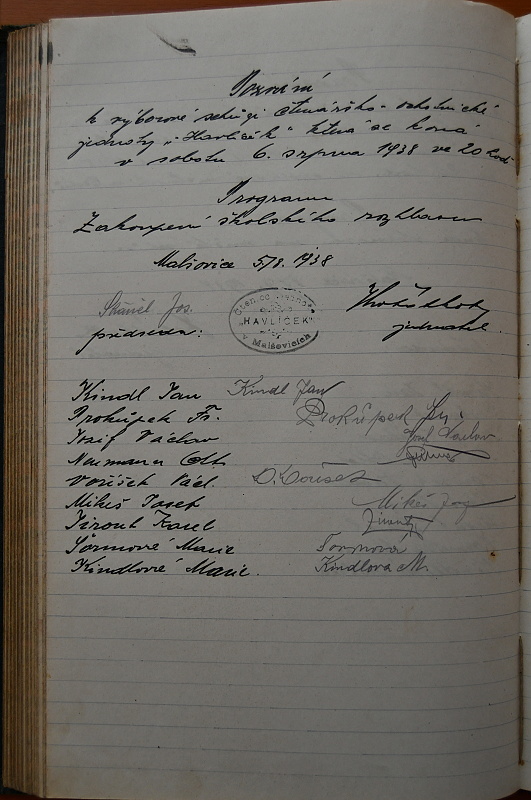 Pozvání
k výborové schůzi čtenářsko-ochotnické
jednoty "Havlíček" která se koná
v sobotu 6. srpna 1938 ve 20 hod
Program
Zakoupení školského rozhlasu
Malšovice 5/8. 1938
Jos.
předseda:
"HAVLÍČEK"
v Malšovicích
jednatel.
Kindl Jan Kindl Jan
Prokůpek Fr. Prokůpek Fr.
Josif Václav Josif Václav
Neumann Ott.
Voříšek Václ.
Mikeš Josef Mikeš Jos
Jirout Karel Jirout
Šormová Marie Šormová
Kindlová Marie. Kindlova M.